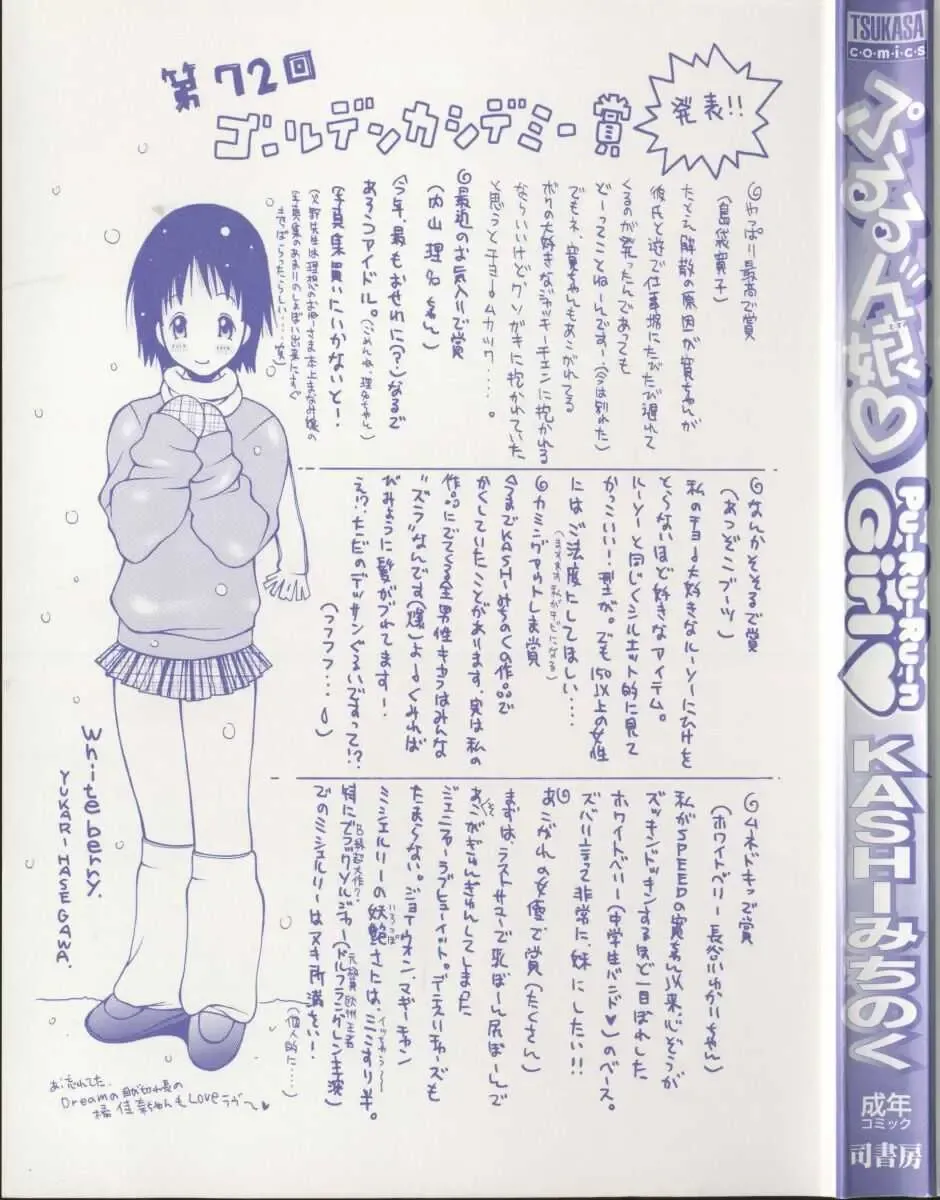 第72回
ゴールデンカシデミー賞
発表!!
やっぱり最高で賞
(島袋寛子)
たとえ解散の原因が寛ちゃんが
彼氏と遊んで仕事場にたびたび遅れて
くるのが発ったんであっても
どーってことねーんです…(今は別れた)
でもネ、寛ちゃんもあこがれてる
ボクの大好きなジャッキーチェンに抱かれる
ならいいけどクソガキに抱かれていた
と思うとチョームカック…。
最近のお気入りで賞
(内山理名ちゃん)
今年、最もおせわに(?)なるで
あろうアイドル。(ごめんね、理名ちゃん)
写真集買いにいかないと!
なんかそそるで賞
(あつぞこブーツ)
私のチョー大好きなルーソーにひけを
とらないほど好きなアイテム。
ルーソーと同じくシルエット的に見て
かっこいい!型が。でも150以上の女性
にはご法度にしてほしい…
カミングアウトしま賞
今までKASHIみちのくの作品で
かくしていたことがあります。実は私の
作品にでてくる全男性キャラはみんな
"ズラ"なんです(爆)よーくみれば
びみょうに髪がづれてます!
え!?ただのデッサンぐるいですって!?
(フフフフ…)
ムネドキッで賞
(ホワイトベリー長谷川ゆかりちゃん)
私がSPEEDの寛ちゃん以来、心ぞうが
ズッキンドッキンするほど一目ぼれした
ホワイトベリー(中学生バンド♥)のベース。
ズバリ言って非常に、妹にしたい!!
あこがれの女優で賞(たくさん)
まずは、ラストサマーで乳ぼーん尻ぼーんで
あごがぎゅんぎゅんしてしまった
ジェニファーラブヒューイット。デニスリチャーズも
たまらない。ジョイウォン、マギーチャン
ミシェルリーの妖艶さたは、ミミずり半。
特にでブラックソルジャー(ドルフラングレン主演)
でのミシェルリーはヌキ所満さい!
(個人的に…)
Whiteberry.
YUKARI・HASEGAWA.
あ、忘れてた。
Dreamの目が切れ長の
橘佳奈ちゃんもLoveラヴ〜♥
TSUKASA
c・o・m・i・c・s
ぷるるんっ娘♡
PU-RU-RU-n
Girl♡
KASHIみちのく
成年
コミック
司書房